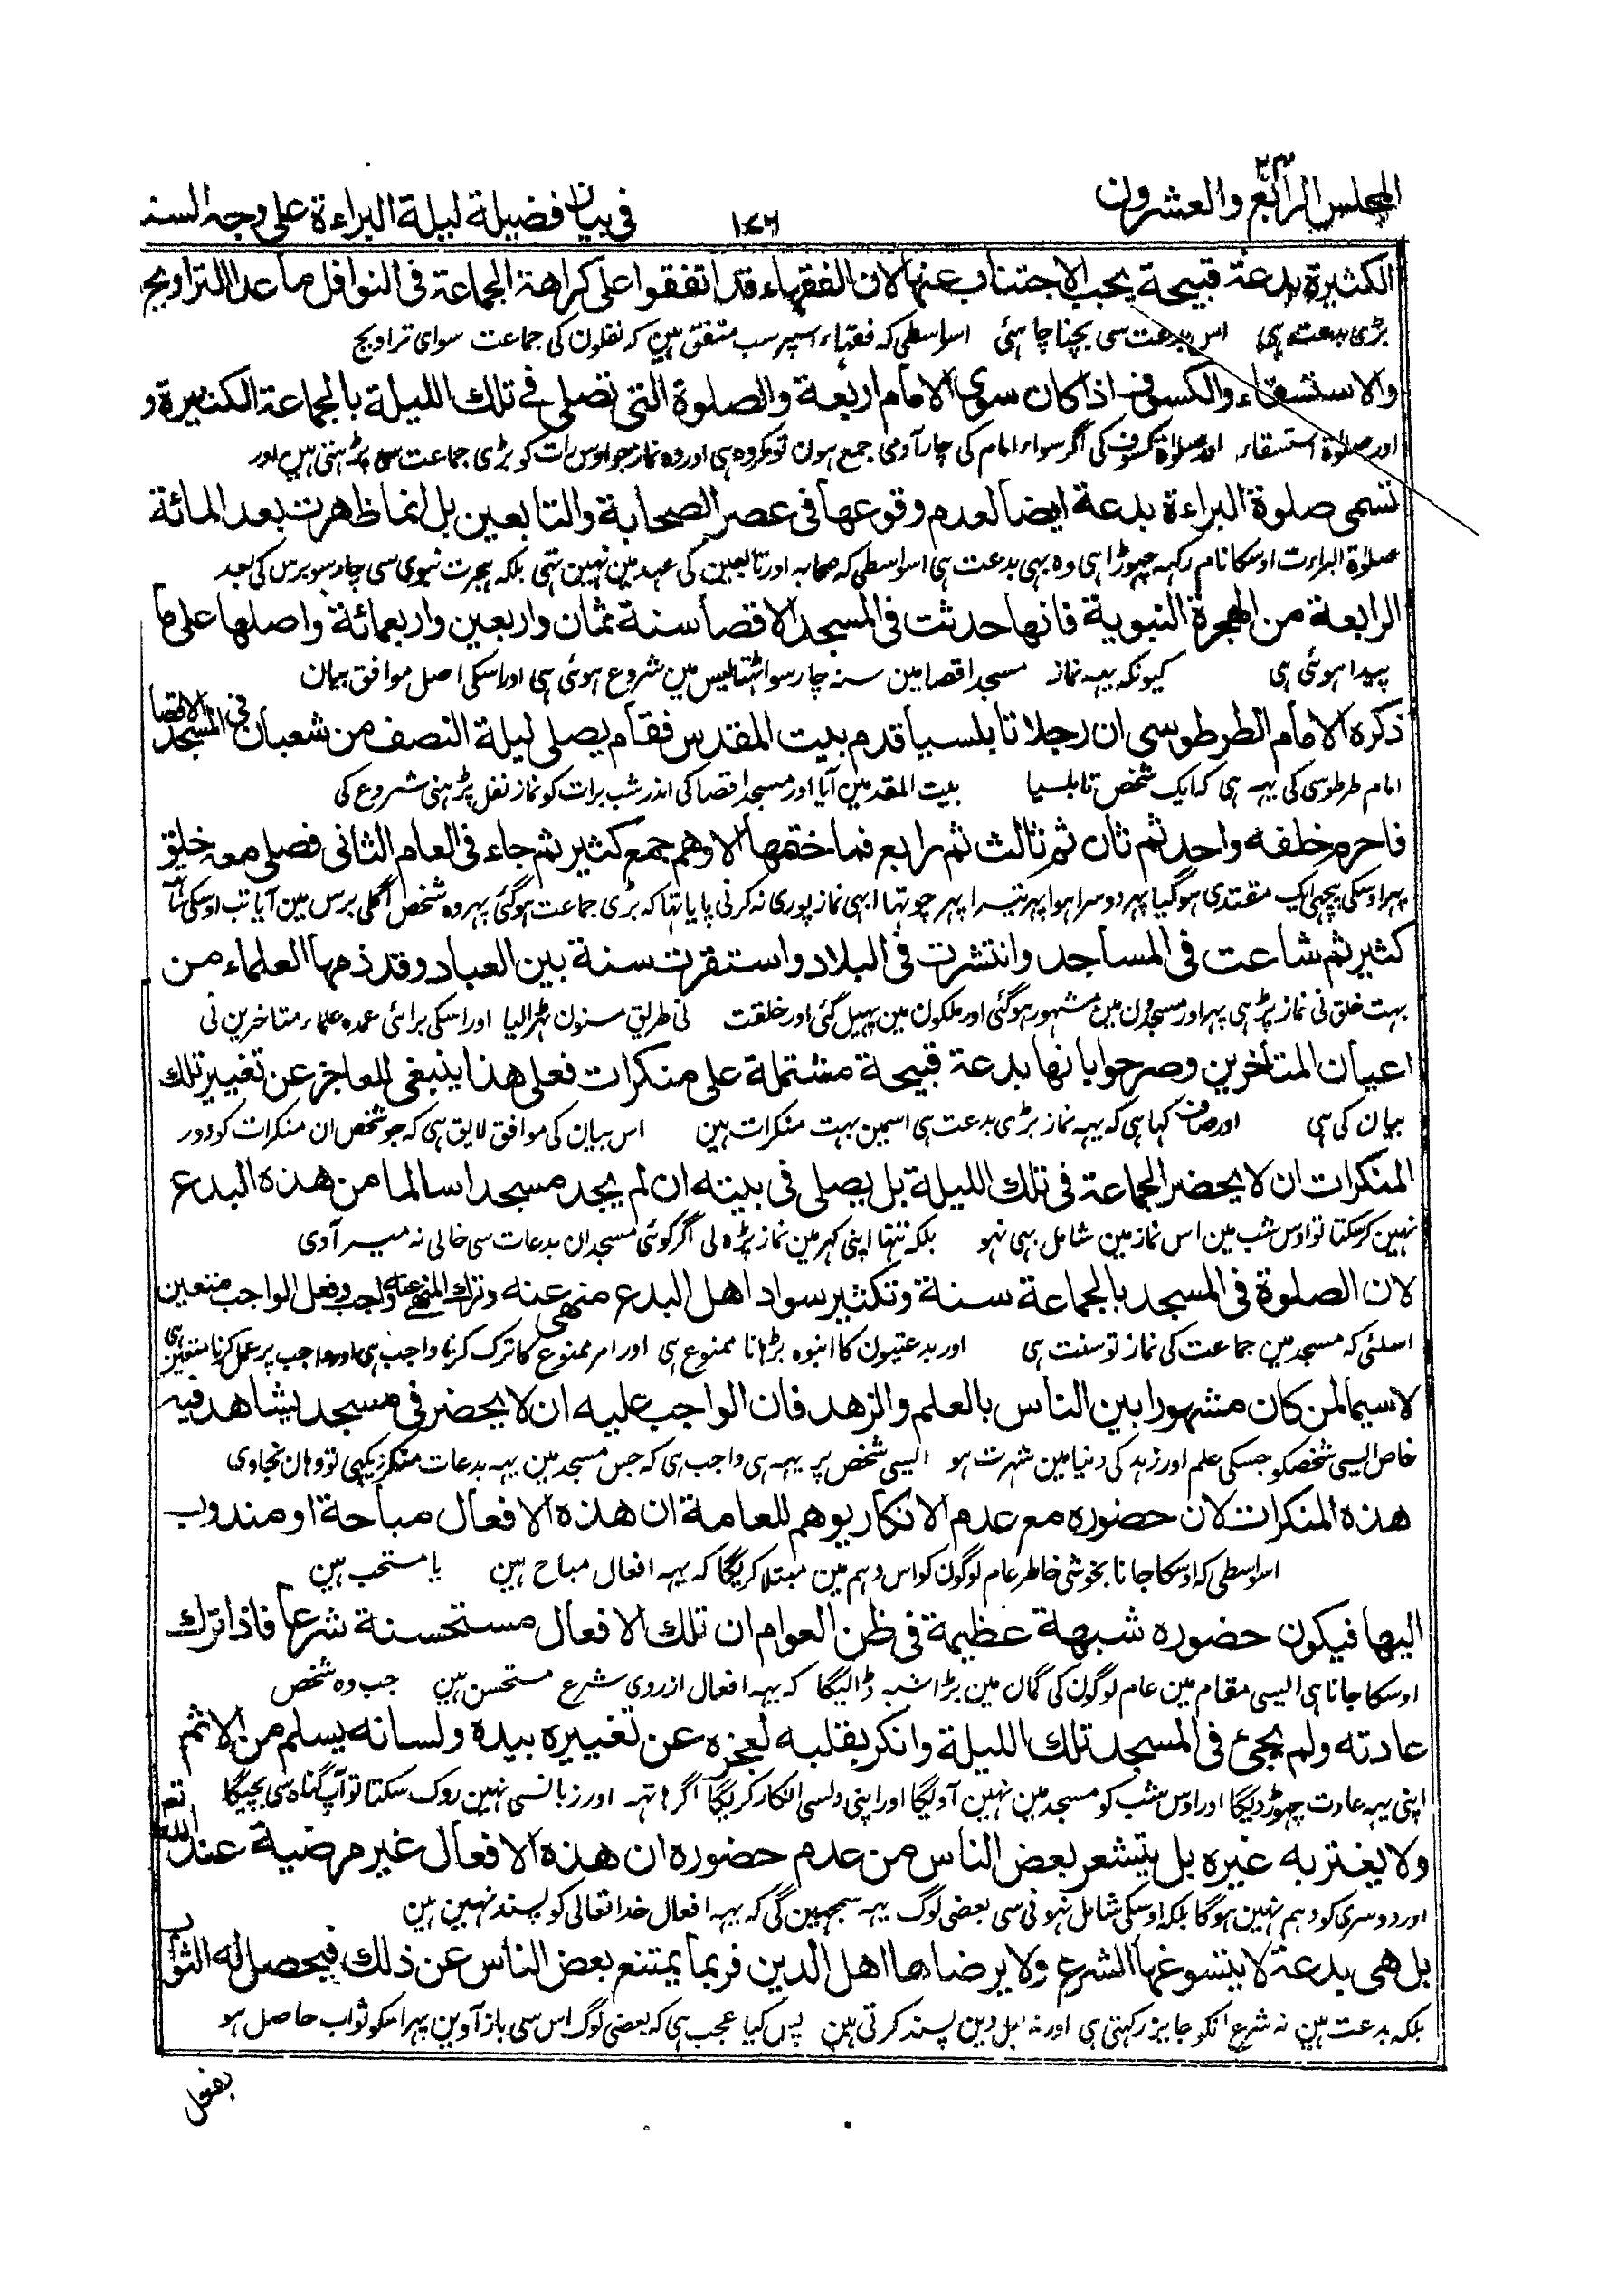 المجلس الرابع والعشرون ۲۴
۱۷۶
فی بیان فضیلة لیلة البراءة علی وجه السنة
الکثیرة بدعة قبیحة یجب الاجتناب عنها لان الفقهاء قد اتفقوا علی کراهة الجماعة فی النوافل ما عدا التراویح
بڑی بدعت ہی اس بدعت سی بچنا چاہئی اسواسطی کہ فقہاء اسپر سب متفق ہین کہ نفلون کی جماعت سوای تراویح
والاستسقاء والکسوف اذا کان سوی الامام اربعة والصلوة التی تصلی فی تلک اللیلة بالجماعة الکثیرة و
اور صلوٰة استسقاء اور صلوٰة کسوف کی اگر سواء امام کی چار آدمی جمع ہون تو مکروہ ہی اور وہ نماز جو اوس رات کو بڑی جماعت سی پڑہتی ہین اور
تسمی صلوة البراءة بدعة ایضا لعدم وقوعها فی عصر الصحابة والتابعین بل انما ظهرت بعد المائة
صلوٰة البراءت اوسکا نام رکہہ چہوڑا ہی وہ بہی بدعت ہی اسواسطی کہ صحابہ اور تابعین کی عہد مین نہین تہی بلکہ ہجرت نبوی سی چار سو برس کی بعد
الرابعة من الهجرة النبویة فانها حدثت فی المسجد الاقصا سنة ثمان واربعین واربعمائة واصلها علی ما
پیدا ہوئی ہی کیونکہ یہہ نماز مسجد اقصا مین سنہ چار سو اٹہتالیس مین شروع ہوئی ہی اور اسکی اصل موافق بیان
ذکره الامام الطرطوسی ان رجلا تابلسیا قدم بیت المقدس فقام یصلی لیلة النصف من شعبان فی المسجد الاقصا
امام طرطوسی کی یہہ ہی کہ ایک شخص تابلسیا بیت المقدس مین آیا اور مسجد اقصا کی اندر شب برات کو نماز نفل پڑہنی شروع کی
فاحرم خلفه واحد ثم ثان ثم ثالث ثم رابع فما ختمها الا وهم جمع کثیر ثم جاء فی العام الثانی فصلی معه خلق
پہر اوسکی پیچہی ایک مقتدی ہوگیا پہر دوسرا ہوا پہر تیسرا پہر چوتہا ابہی نماز پوری نہ کرنی پایا تہا کہ بڑی جماعت ہوگئی پہر وہ شخص اگلی برس مین آیا تب اوسکی ساتہ
کثیر ثم شاعت فی المساجد وانتشرت فی البلاد واستقرت سنة بین العباد وقد ذمها العلماء من
بہت خلق نی نماز پڑہی پہر اور مسجدون مین مشہور ہوگئی اور ملکون مین پہیل گئی اور خلقت نی طریق مسنون ٹہرا لیا اور اسکی برائی عمدہ علماء متاخرین نی
اعیان المتأخرین وصرحوا بانها بدعة قبیحة مشتملة علی منکرات فعلی هذا ینبغی للعاجز عن تغییر تلک
بیان کی ہی اور صاف کہا ہی کہ یہہ نماز بڑی بدعت ہی اسمین بہت منکرات ہین اس بیان کی موافق لایق ہی کہ جو شخص ان منکرات کو دور
المنکرات ان لا یحضر الجماعة فی تلک اللیلة بل یصلی فی بیته ان لم یجد مسجدا سالما من هذه البدع
نہین کرسکتا تو اوس شب مین اس نماز مین شامل بہی نہو بلکہ تنہا اپنی گہر مین نماز پڑہ لی اگر کوئی مسجد ان بدعات سی خالی نہ میسر آوی
لان الصلوة فی المسجد بالجماعة سنة وتکثیر سواد اهل البدع منهی عنه وترک المنهی عنه واجب وفعل الواجب متعین
اسلئی کہ مسجد مین جماعت کی نماز تو سنت ہی اور بدعتیون کا انبوہ بڑہانا ممنوع ہی اور امر ممنوع کا ترک کرنا واجب ہی اور واجب پر عمل کرنا متعین ہی
لاسیما لمن کان مشهورا بین الناس بالعلم والزهد فان الواجب علیه ان لا یحضر فی مسجد یشاهد فیه
خاص ایسی شخص کو جسکی علم اور زہد کی دنیا مین شہرت ہو ایسی شخص پر یہہ ہی واجب ہی کہ جس مسجد مین یہہ بدعات منکر دیکہی تو وہان نجاوی
هذه المنکرات لان حضوره مع عدم الانکار یوهم للعامة ان هذه الافعال مباحة او مندوب
اسواسطی کہ اوسکا جانا بخوشی خاطر عام لوگون کو اس وہم مین مبتلا کریگا کہ یہہ افعال مباح ہین یا مستحب ہین
الیها فیکون حضوره شبهة عظیمة فی ظن العوام ان تلک الافعال مستحسنة شرعا فاذا ترک
اوسکا جانا ہی ایسی مقام مین عام لوگون کی گمان مین بڑا شبہ ڈالیگا کہ یہہ افعال از روی شرع مستحسن ہین جب وہ شخص
عادته ولم یجئ فی المسجد تلک اللیلة وانکر بقلبه لعجزه عن تغییره بیده ولسانه یسلم من الاثم
اپنی یہہ عادت چہوڑ دیگا اور اوس شب کو مسجد مین نہین آویگا اور اپنی دلسی انکار کریگا اگر ہاتہہ اور زبانسی نہین روک سکتا تو آپ گناہ سی بچیگا
ولا یغتر به غیره بل یتشعر بعض الناس من عدم حضوره ان هذه الافعال غیر مرضیة عند الله تع
اور دوسری کو وہم نہین ہوگا بلکہ اوسکی شامل نہونی سی بعضی لوگ یہہ سمجہین گی کہ یہہ افعال خدا تعالی کو پسند نہین ہین
بل هی بدعة لا یتسوغها الشرع ولا یرضاها اهل الدین فربما یمتنع بعض الناس عن ذلک فیحصل له الثواب
بلکہ بدعت ہین نہ شرع انکو جایز رکہتی ہی اور نہ اہل دین پسند کرتی ہین پس کیا عجب ہی کہ بعضی لوگ اس سی باز آوین پہر اسکو ثواب حاصل ہو
بفعل